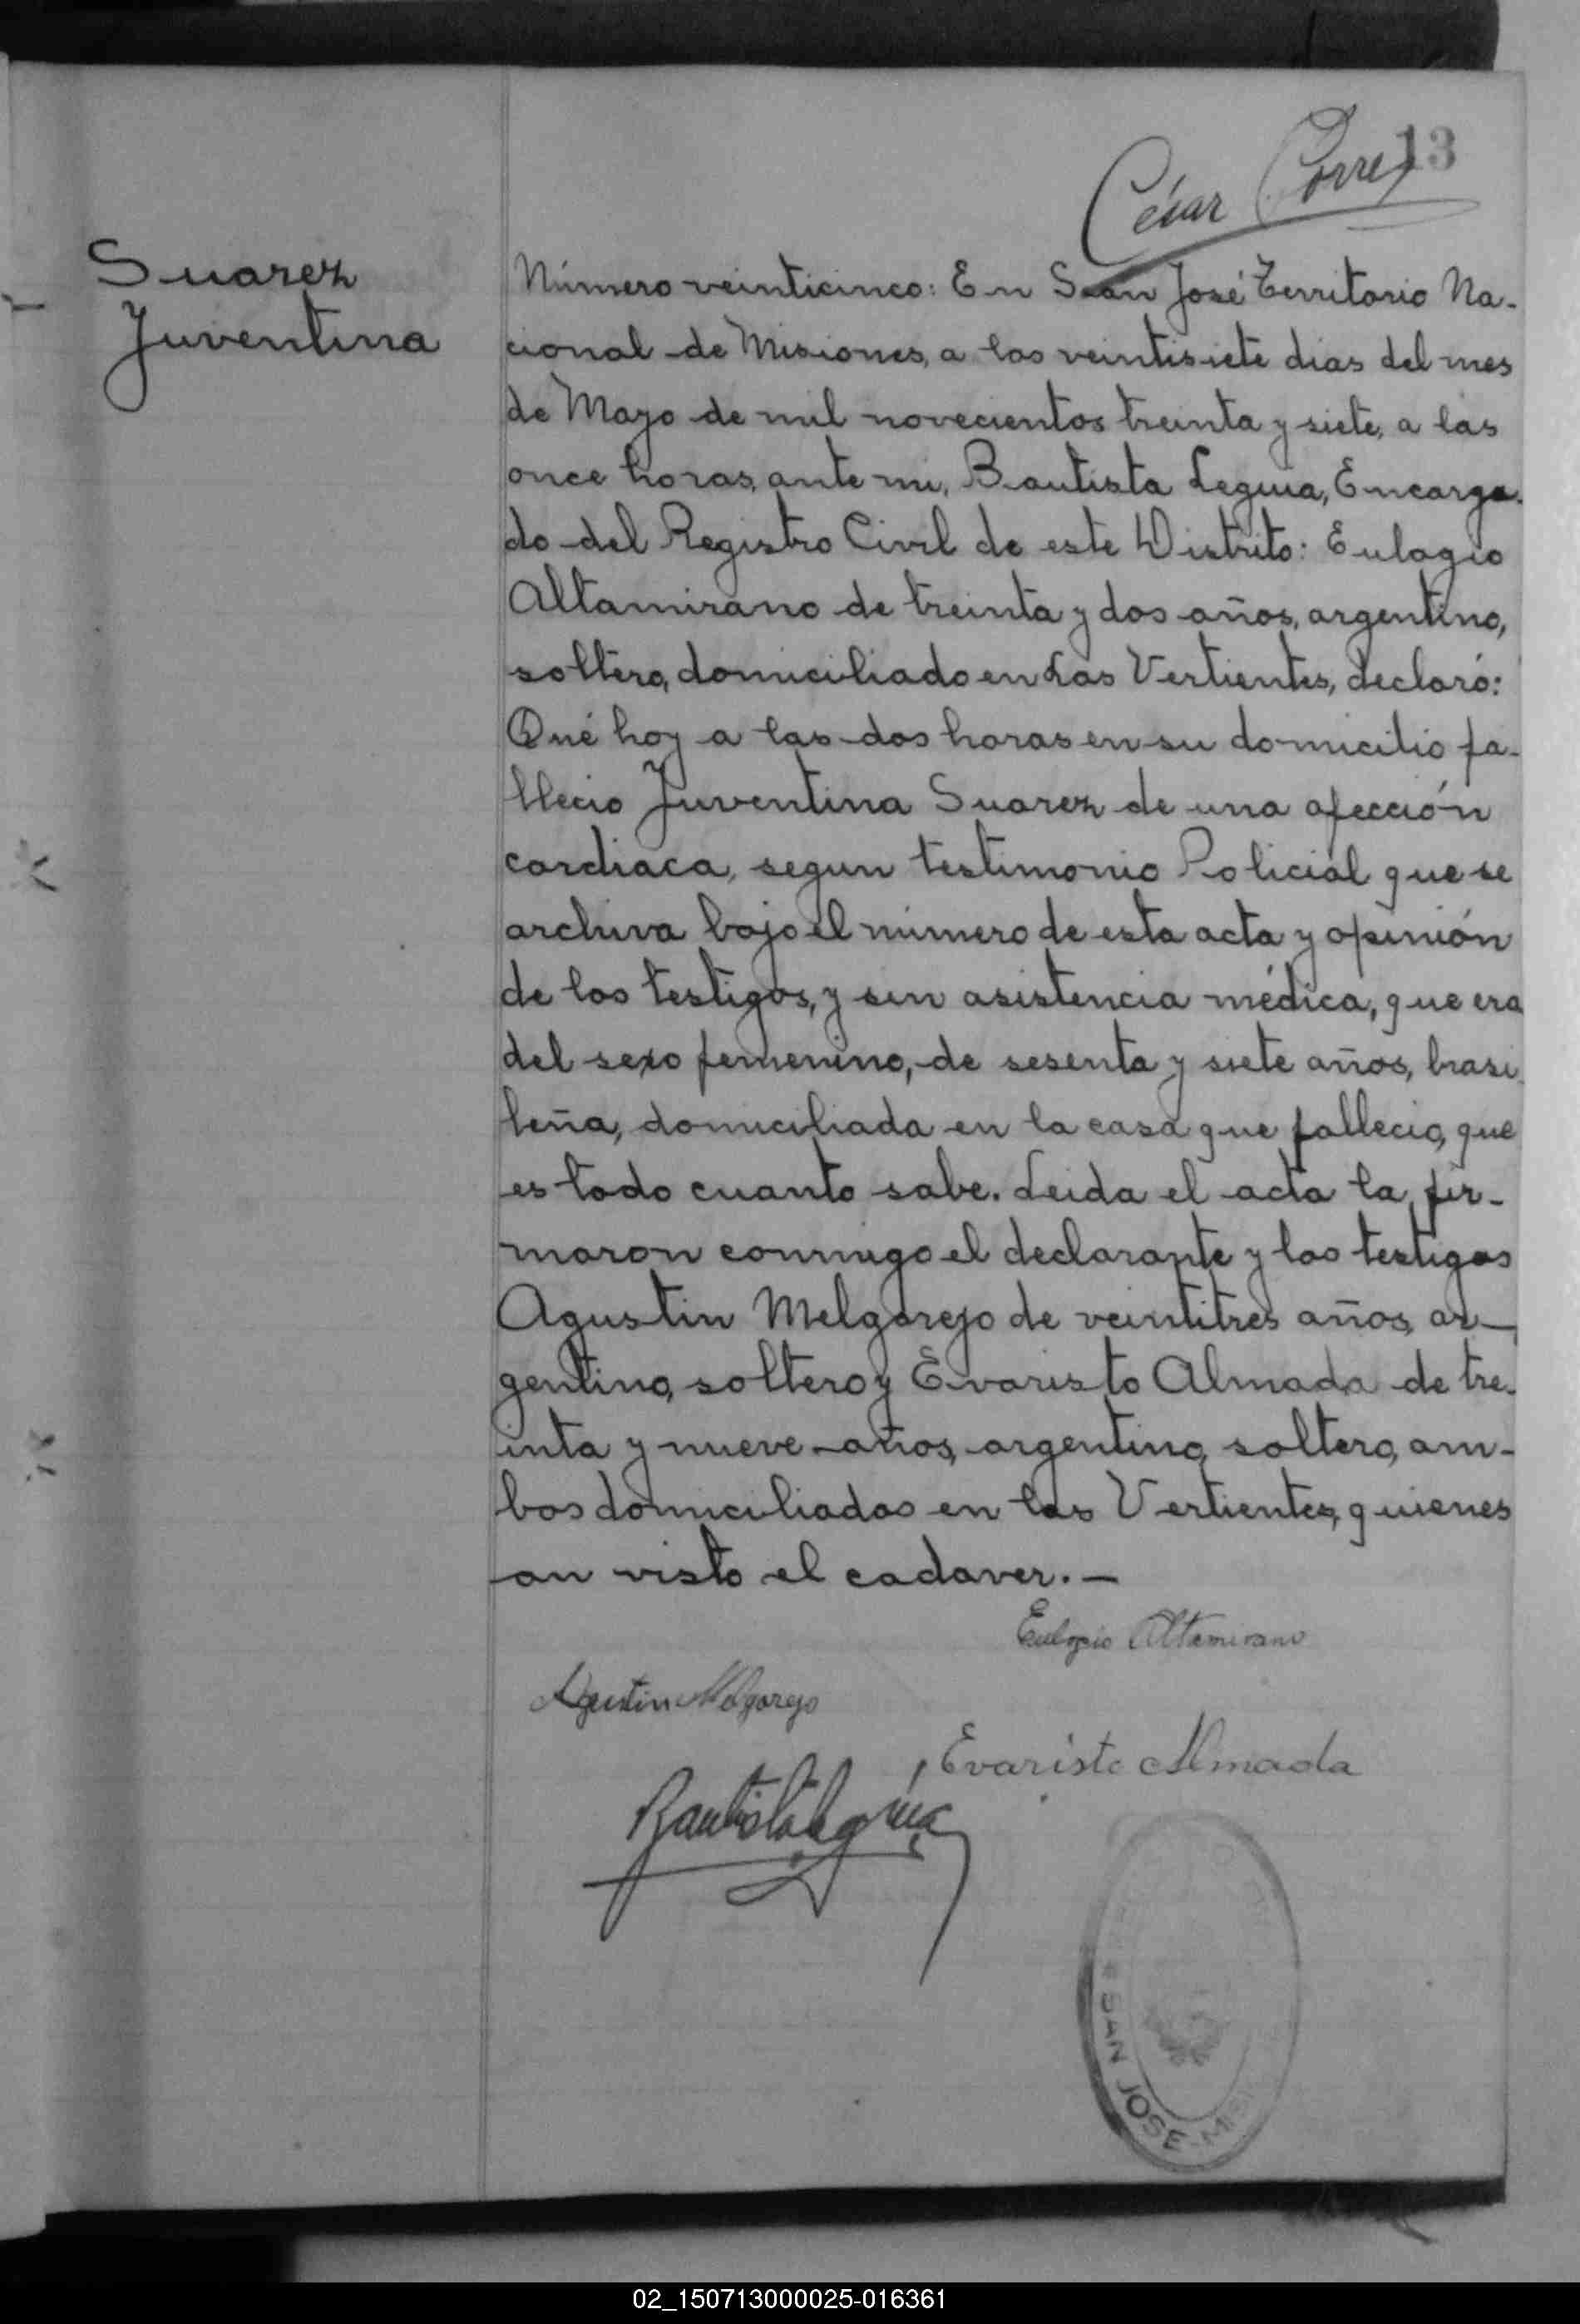 13
César Torres
Suarez
Juventina
Número veinticinco: En San José Territorio Na-
cional de Misiones, a los veintisiete dias del mes
de Mayo de mil novecientos treinta y siete, a las
once horas, ante mi, Bautista Leguia, Encarga-
do del Registro Civil de este Distrito: Eulogio
Altamirano de treinta y dos años, argentino,
soltero, domiciliado en Las Vertientes, declaró:
Qué hoy a las dos horas en su domicilio fa-
llecio Juventina Suarez de una afección
cardiaca, segun testimonio Policial que se
archiva bajo el número de esta acta y opinión
de los testigos, y sin asistencia médica, que era
del sexo femenino, de sesenta y siete años, brasi-
leña, domiciliada en la casa que fallecio, que
es todo cuanto sabe. Leida el acta la fir-
maron conmigo el declarante y los testigos
Agustin Melgarejo de veintitres años, ar-
gentino, soltero y Evaristo Almada de tre-
inta y nueve años, argentino, soltero, am-
bos domiciliados en las Vertientes, quienes
an visto el cadaver.-
Eulogio Altamirano
Agustin Melgarejo
Evaristo Almada
Bautista Leguia
SAN JOSE-
02_150713000025-016361